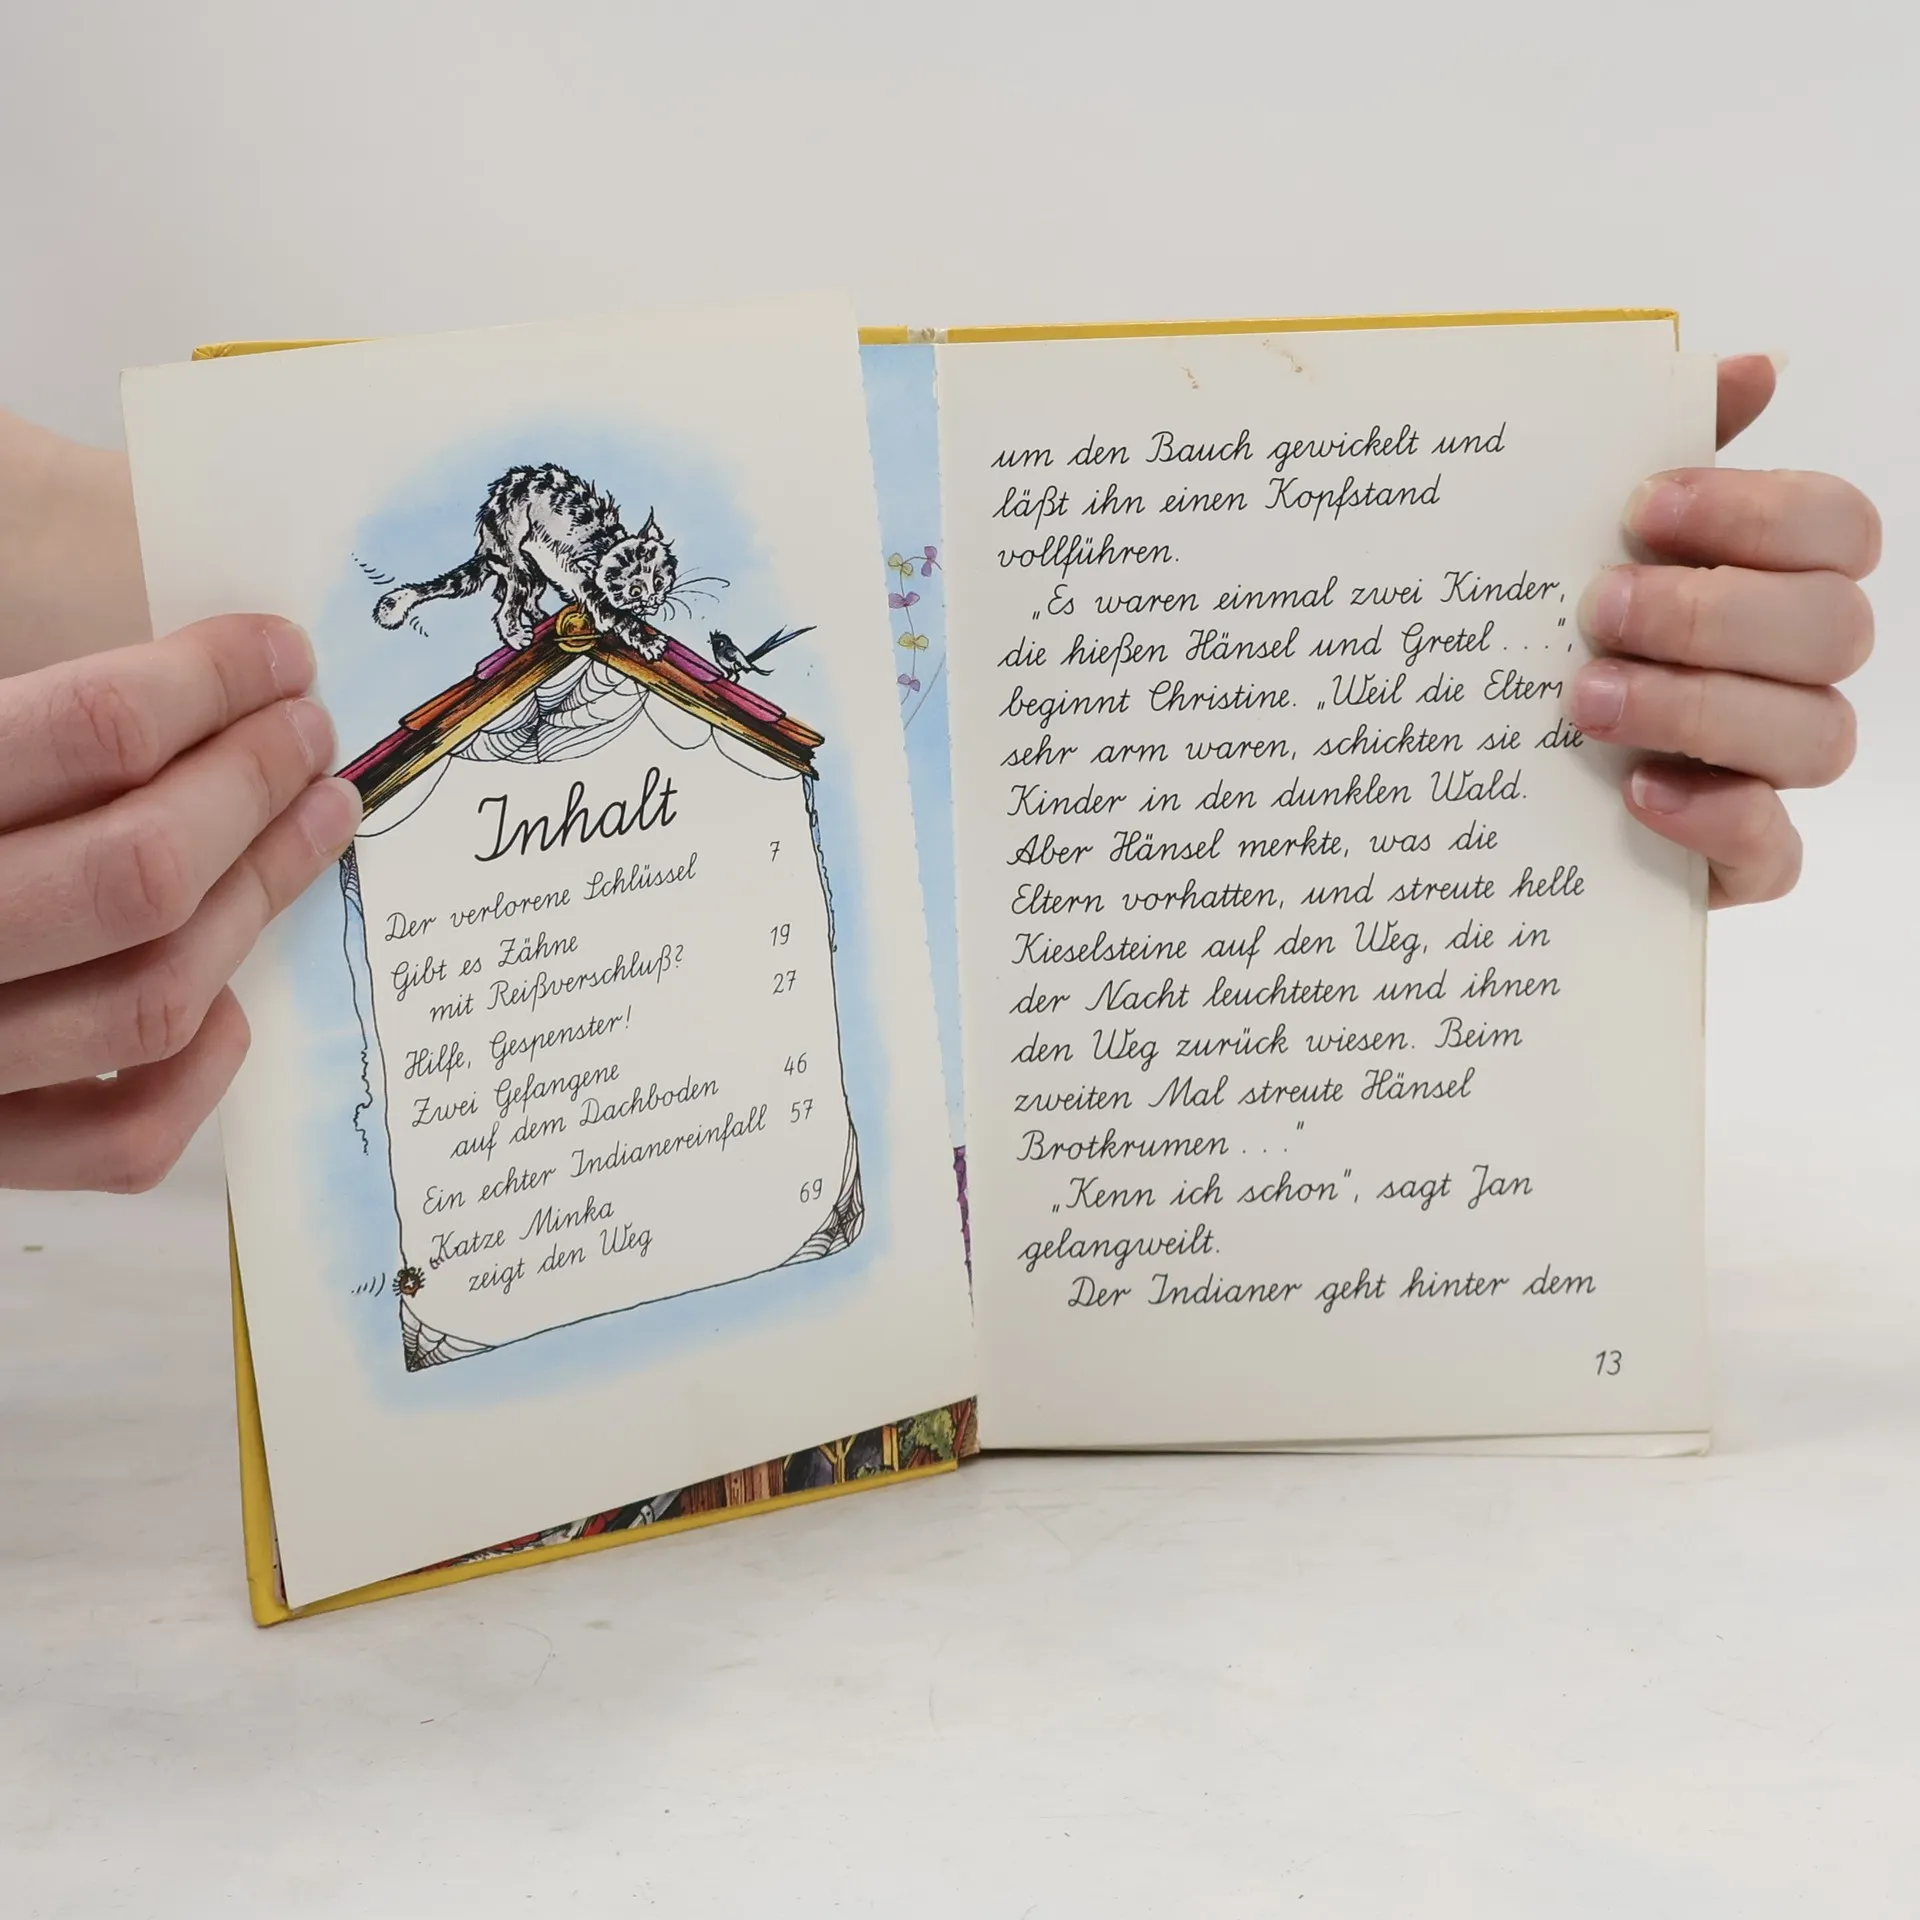 Inhalt
Der verlorene Schlüssel 7
Gibt es Zähne
mit Reißverschluß? 19
Hilfe, Gespenster! 27
Zwei Gefangene
auf dem Dachboden 46
Ein echter Indianereinfall 57
Katze Minka
zeigt den Weg 69
um den Bauch gewickelt und
läßt ihn einen Kopfstand
vollführen.
„Es waren einmal zwei Kinder,
die hießen Hänsel und Gretel . . .",
beginnt Christine. „Weil die Eltern
sehr arm waren, schickten sie die
Kinder in den dunklen Wald.
Aber Hänsel merkte, was die
Eltern vorhatten, und streute helle
Kieselsteine auf den Weg, die in
der Nacht leuchteten und ihnen
den Weg zurück wiesen. Beim
zweiten Mal streute Hänsel
Brotkrumen . . ."
„Kenn ich schon", sagt Jan
gelangweilt.
Der Indianer geht hinter dem
13